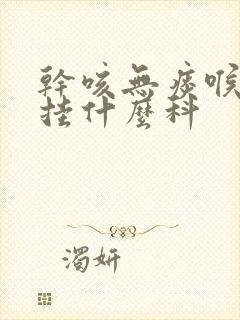 幹咳無痰喉
挂什麼科
濁妍